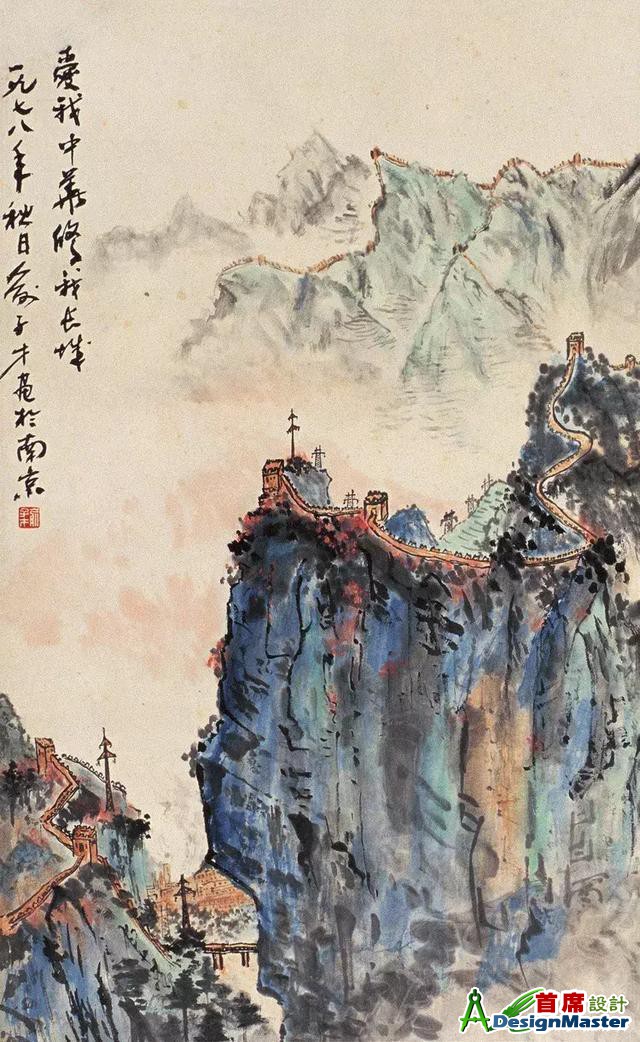 愛我中華修我長城
一九七八年秋日俞子才畫於南京
首席設計
DesignMaster